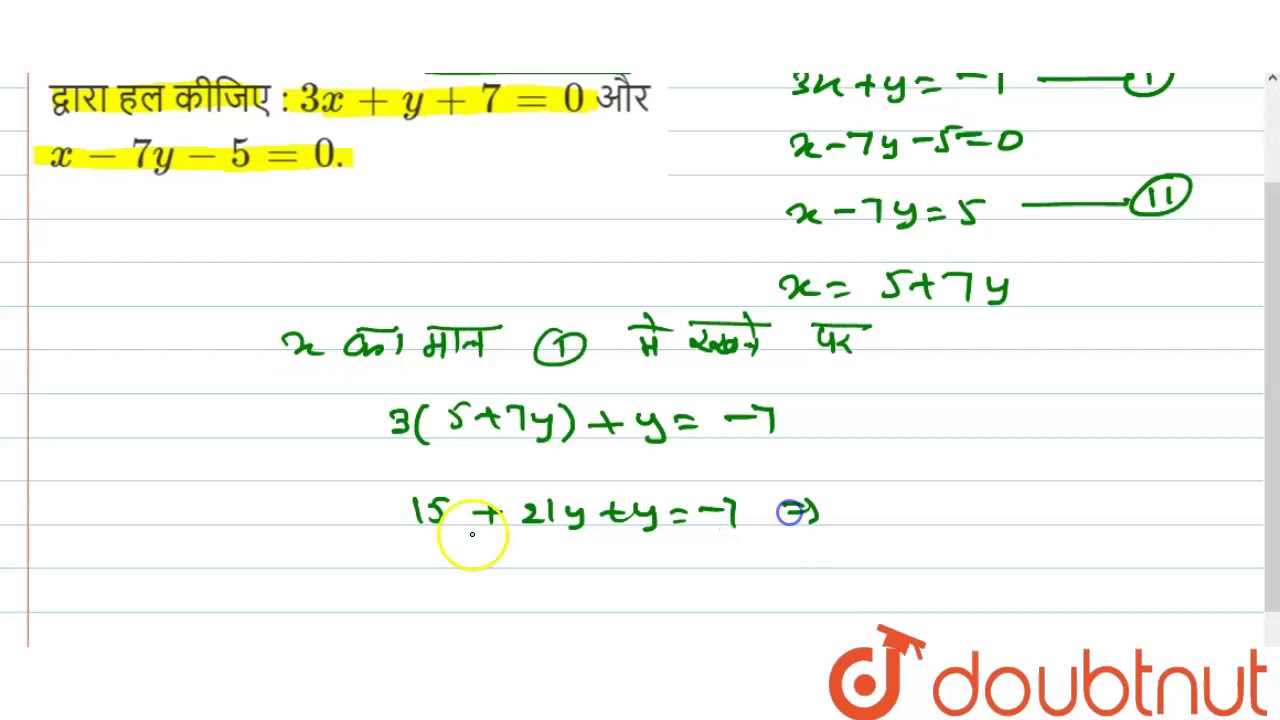 द्वारा हल कीजिए : 3x + y + 7 = 0 और
x − 7y − 5 = 0.
3x + y = -7 — ①
x - 7y - 5 = 0
x - 7y = 5 — ⑪
x = 5 + 7y
x का मान ① में रखने पर
3( 5 + 7y ) + y = -7
15 + 21y + y = -7 ⇒
doubtnut